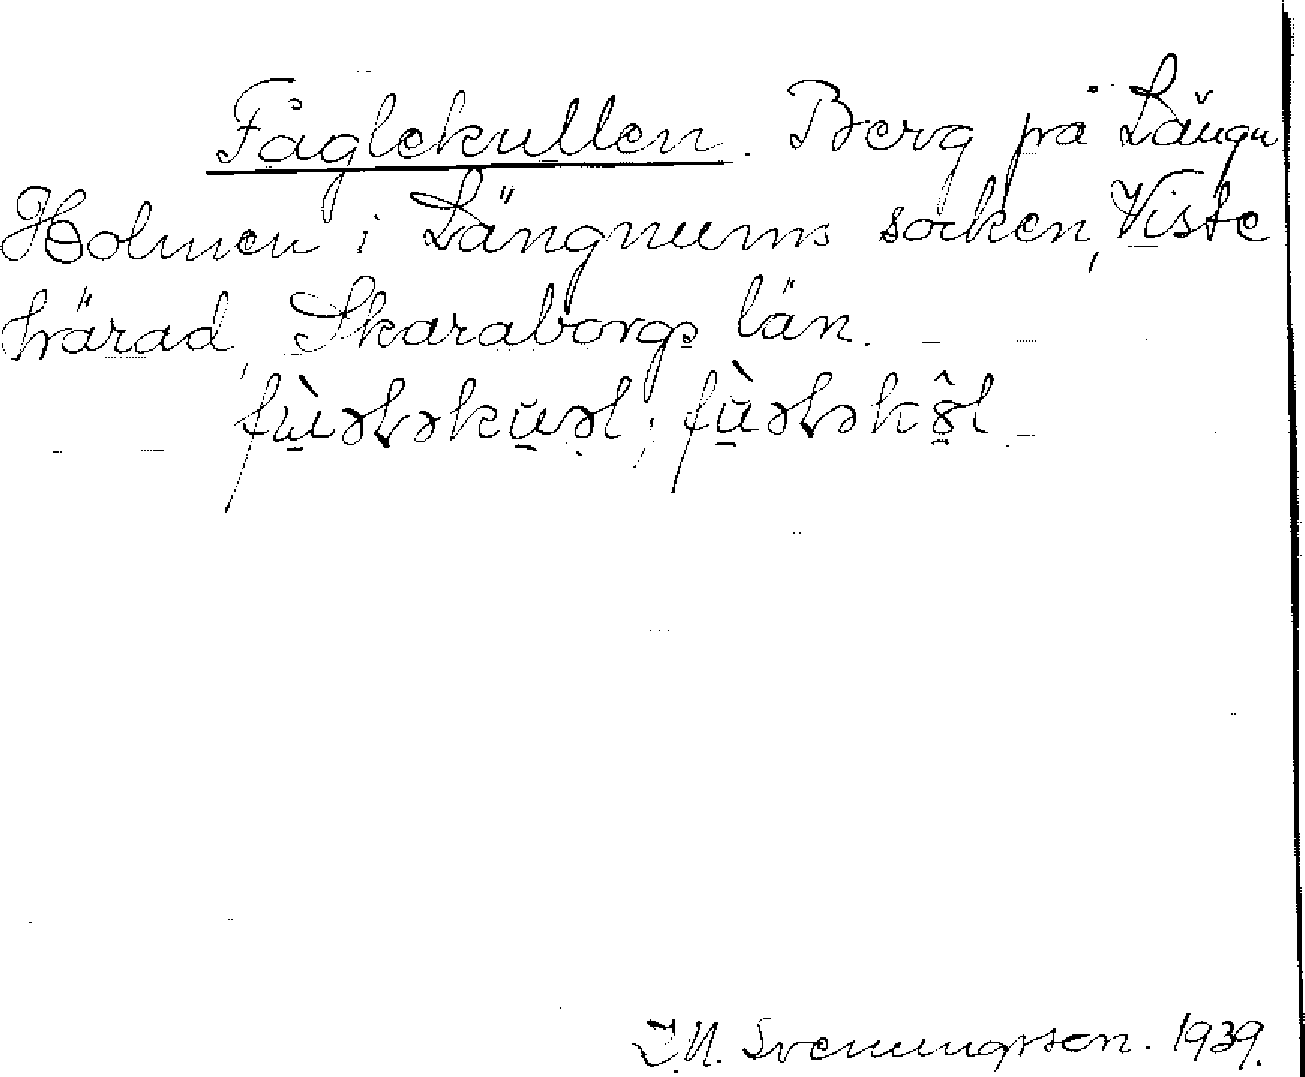 Fåglekullen. Berg på Långa
Holmen i Längnums socken, Viste
härad, Skaraborgs län.
J. N. Svenungsson. 1939.